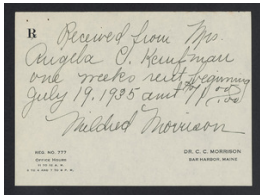 R
Received from Mrs.
Angela C. Kaufman
one weeks rent beginning
July 19, 1935 amt
Mildred Morrison
REG. NO. 777
OFFICE HOURS
DR. C. C. MORRISON
BAR HARBOR, MAINE